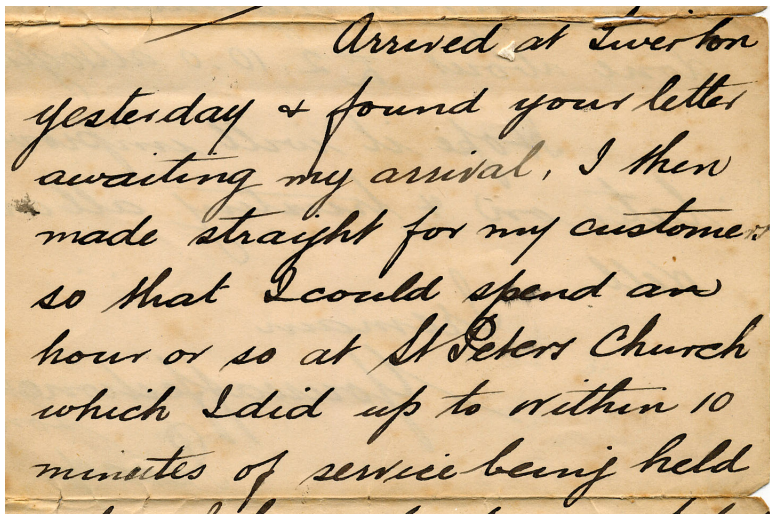 Arrived at Tiverton
yesterday & found your letter
awaiting my arrival, I then
made straight for my customers
so that I could spend an
hour or so at St Peters Church
which I did up to within 10
minutes of service being held